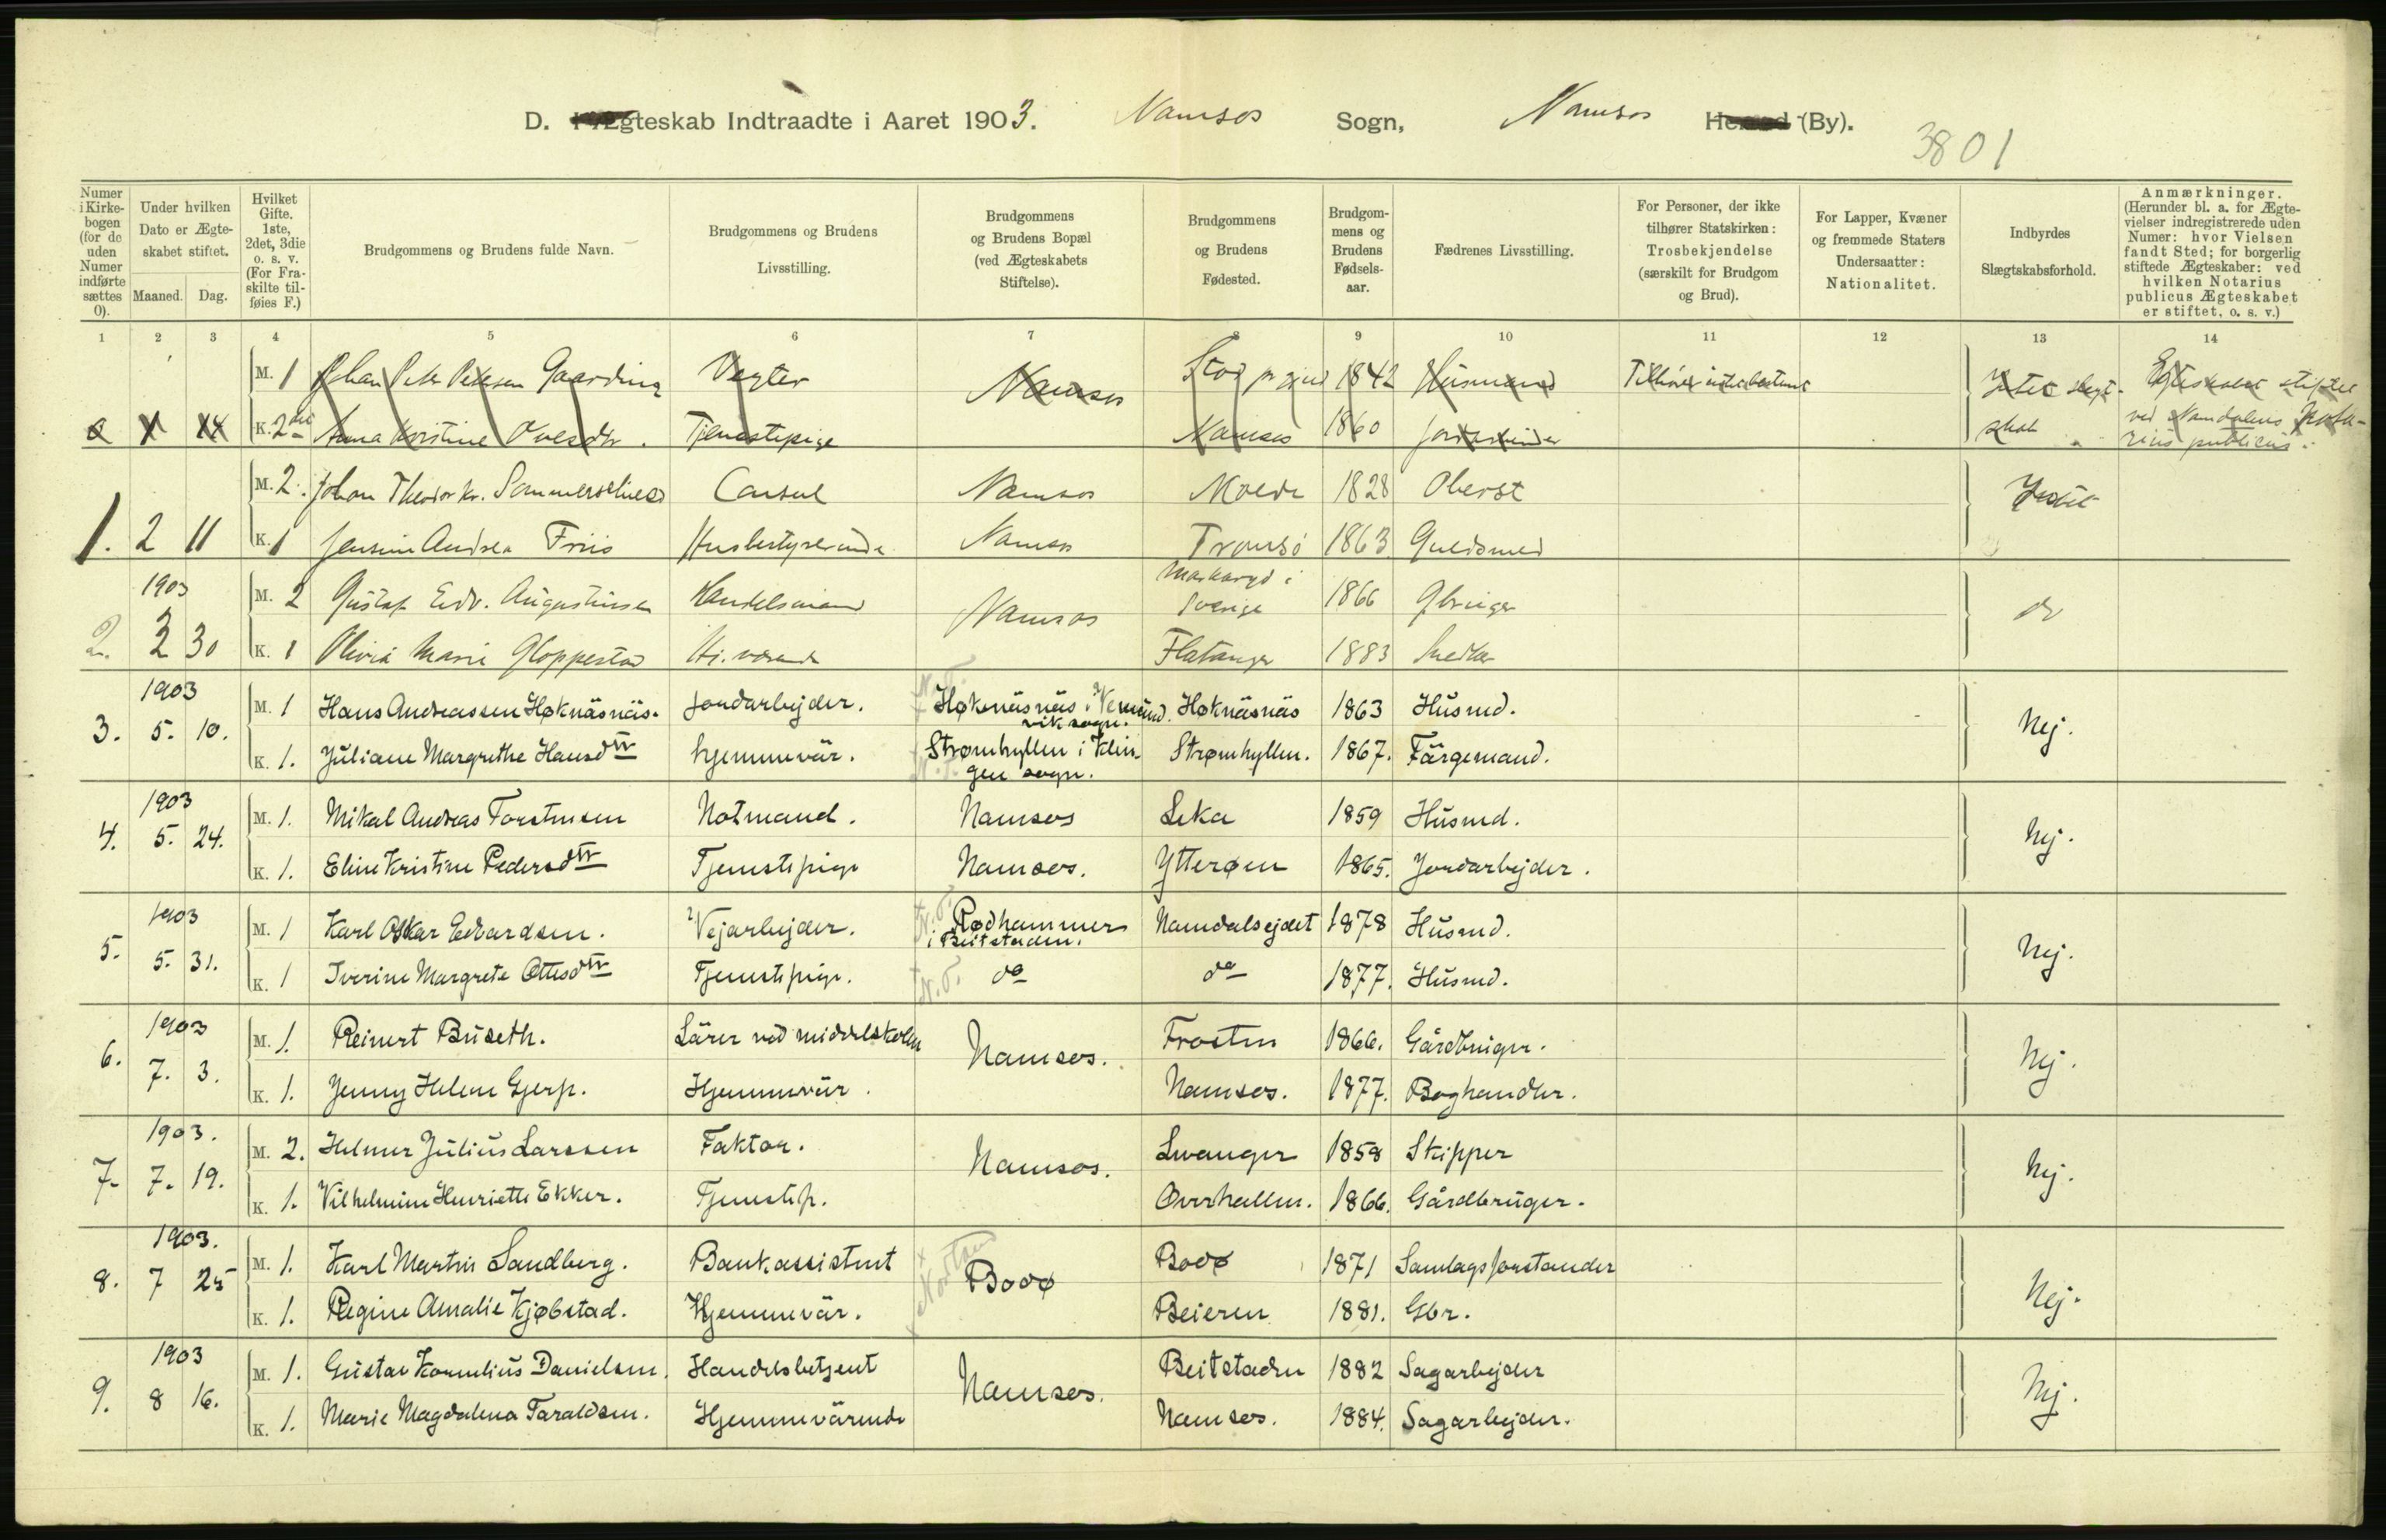 D. I Ægteskab Indtraadte i Aaret 1903. Namsos Sogn, Namsos Herred (By).
3801
Numer i Kirkebogen (for de uden Numer indførte sættes 0).
Under hvilken Dato er Ægteskabet stiftet.
Maaned. Dag.
Hvilket Gifte. 1ste, 2det, 3die o. s. v. (For Fraskilte tilføies F.)
Brudgommens og Brudens fulde Navn.
Brudgommens og Brudens Livsstilling.
Brudgommens og Brudens Bopæl (ved Ægteskabets Stiftelse).
Brudgommens og Brudens Fødested.
Brudgommens og Brudens Fødselsaar.
Fædrenes Livsstilling.
For Personer, der ikke tilhører Statskirken: Trosbekjendelse (særskilt for Brudgom og Brud).
For Lapper, Kvæner og fremmede Staters Undersaatter: Nationalitet.
Indbyrdes Slægtskabsforhold.
Anmærkninger. (Herunder bl. a. for Ægtevielser indregistrerede uden Numer: hvor Vielsen fandt Sted; for borgerlig stiftede Ægteskaber: ved hvilken Notarius publicus Ægteskabet er stiftet, o. s. v.)
1 2 3 4 5 6 7 8 9 10 11 12 13 14
M. 1 Johan Peter Petersen Gaarding Vegter Namsos Stod 1842 Husmand Intet slegt- Egteskabet stiftet
K. 2 Anna Kristine Tjenestepige Namsos 1860 skab ved Namdalens Nota-
rius publicus.
M. 2. Johan Theodor Kr. Sommerschield Consul Namsos Molde 1828 Oberst
1. 2 11 K. 1 Jensine Andrea Friis Husbestyrerinde Namsos Tromsø 1863 Guldsmed
1903 M. 2 Gustaf Edv. Augustinsen Handelsmand Namsos Sverige 1866 Gbruger do
2. 3 30 K. 1 Olivia Marie Gloppestad Hj. værende Flatanger 1883
1903 M. 1 Hans Andreassen Høknäsnäs. Jordarbejder. Høknäsnäs i Vemundvik sogn. Høknäsnäs 1863 Husmd. Nej.
3. 5. 10. K. 1. Juliane Margrethe Hansdtr hjemmevär. Strømhyllen i Klingen sogn. Strømhyllen. 1867. Färgemand.
1903 M. 1. Mikal Andreas Torstensen Notmand. Namsos Leka 1859 Husmd. Nej.
4. 5. 24. K. 1. Eline Kristine Pedersdtr Tjenestepige Namsos. Ytterøen 1865. Jordarbejder.
1903 M. 1 Karl Oskar Edvardsen. Vejarbejder. N.T. Rødhammer i Beitstaden. Namdalsejdet 1878 Husmd. Nej.
5. 5. 31. K. 1 Iverine Margrete Ottesdtr Tjenestepige. N.T. do do 1877. Husmd.
1903 M. 1. Reinert Buseth. Lärer ved middelskolen Namsos. Frosten 1866. Gårdbruger. Nej.
6. 7. 3. K. 1. Jenny Helene Gjerp. Hjemmevär. Namsos. 1877. Boghandler.
1903. M. 2. Helmer Julius Larssen Faktor. Namsos. Levanger 1858 Skipper Nej.
7. 7. 19. K. 1. Vilhelmine Henriette Ekker. Tjenestep. Overhallen. 1866. Gårdbruger.
1903. M. 1. Karl Martin Sandberg. Bankassistent Bodø Bodø 1871 Samlagsforstander Nej.
8. 7 25 K. 1. Regine Amalie Kjøbstad. Hjemmevär. Beieren 1881. Gbr.
1903 M. 1. Gustav Kornelius Danielsen. Handelsbetjent Namsos. Beitstaden 1882 Sagarbejder Nej.
9. 8 16. K. 1. Marie Magdalena Taraldsen. Hjemmevärende Namsos. 1884. Sagarbejder.